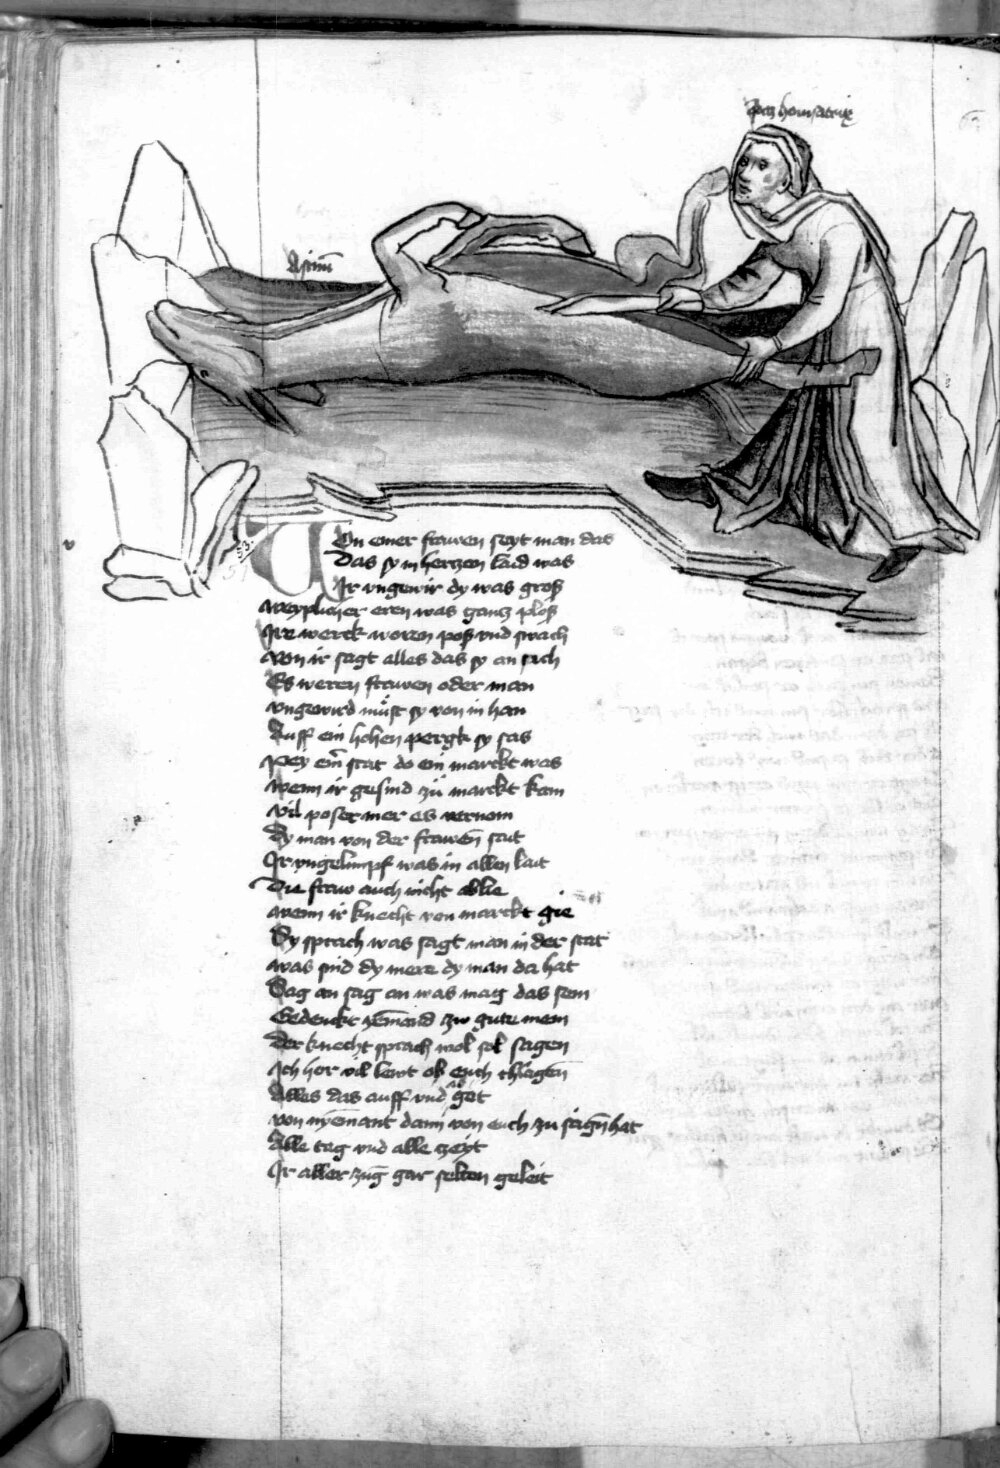 Von einer frawen seyt man das
Das sy in hertzen laid was
Ir vngewir dy was groß
weyplicher eren was gantz ploß
Ire werck woren poß vnd swach
Von ir sagt alles das sy an sach
Es weren frawen oder man
vngewird müst sy von in han
Auff ein hohen pergk sy sas
Pey eim stat do ein marckt was
wenn ir gesind zü marckt kam
vil poser mer es vernom
Dy man von der frawen sait
Ir vngelimpf was in allen lait
Die fraw auch nicht ablie
wenn ir knecht von marckt gie
Sy sprach was sagt man in der stat
was sind dy mere dy man da hat
Sag an sag an was mag das sein
Gedenckt yemand zw gute mein
Der knecht sprach wol sol sagen
Ich hor vil lewt ob euch chlagen
Alles das auff vnd ab get
von nyemant dann von euch zu sagn hat
Alle tag vnd alle zeyt
Ir aller zung gar selten geleit